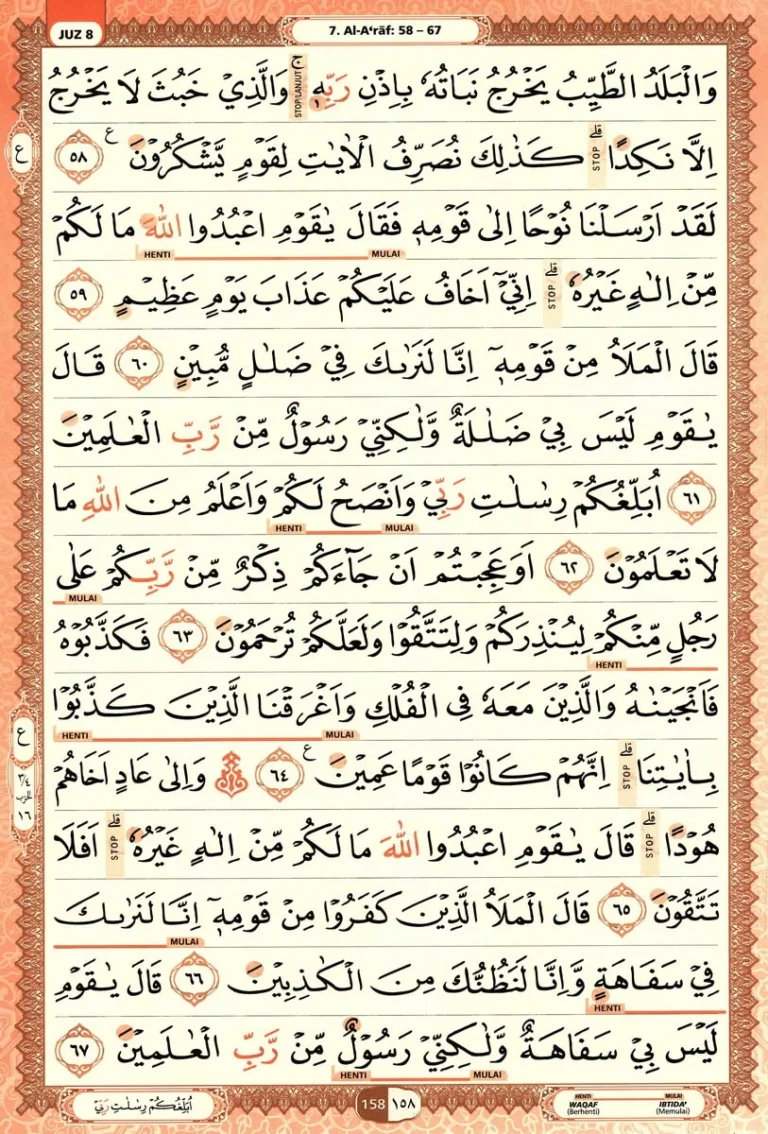 JUZ 8
7. Al-A'rāf: 58 – 67
وَالْبَلَدُ الطَّيِّبُ يَخْرُجُ نَبَاتُهٗ بِاِذْنِ رَبِّهٖۚ STOP/LANJUT وَالَّذِيْ خَبُثَ لَا يَخْرُجُ
اِلَّا نَكِدًاۗ STOP كَذٰلِكَ نُصَرِّفُ الْاٰيٰتِ لِقَوْمٍ يَّشْكُرُوْنَ ࣖ ٥٨
ع
لَقَدْ اَرْسَلْنَا نُوْحًا اِلٰى قَوْمِهٖ فَقَالَ يٰقَوْمِ اعْبُدُوا اللّٰهَ مَا لَكُمْ
MULAI HENTI
مِّنْ اِلٰهٍ غَيْرُهٗۗ STOP اِنِّيْٓ اَخَافُ عَلَيْكُمْ عَذَابَ يَوْمٍ عَظِيْمٍ ٥٩
قَالَ الْمَلَاُ مِنْ قَوْمِهٖٓ اِنَّا لَنَرٰىكَ فِيْ ضَلٰلٍ مُّبِيْنٍ ٦٠ قَالَ
يٰقَوْمِ لَيْسَ بِيْ ضَلٰلَةٌ وَّلٰكِنِّيْ رَسُوْلٌ مِّنْ رَّبِّ الْعٰلَمِيْنَ
٦١ اُبَلِّغُكُمْ رِسٰلٰتِ رَبِّيْ وَاَنْصَحُ لَكُمْ وَاَعْلَمُ مِنَ اللّٰهِ مَا
MULAI HENTI
لَا تَعْلَمُوْنَ ٦٢ اَوَعَجِبْتُمْ اَنْ جَاۤءَكُمْ ذِكْرٌ مِّنْ رَّبِّكُمْ عَلٰى
MULAI
رَجُلٍ مِّنْكُمْ لِيُنْذِرَكُمْ وَلِتَتَّقُوْا وَلَعَلَّكُمْ تُرْحَمُوْنَ ٦٣ فَكَذَّبُوْهُ
HENTI
فَاَنْجَيْنٰهُ وَالَّذِيْنَ مَعَهٗ فِى الْفُلْكِ وَاَغْرَقْنَا الَّذِيْنَ كَذَّبُوْا
MULAI HENTI
بِاٰيٰتِنَاۗ STOP اِنَّهُمْ كَانُوْا قَوْمًا عَمِيْنَ ࣖ ٦٤ ۞ وَاِلٰى عَادٍ اَخَاهُمْ
ع
٣/٤
الحزب
١٦
هُوْدًاۗ STOP قَالَ يٰقَوْمِ اعْبُدُوا اللّٰهَ مَا لَكُمْ مِّنْ اِلٰهٍ غَيْرُهٗۗ STOP اَفَلَا
تَتَّقُوْنَ ٦٥ قَالَ الْمَلَاُ الَّذِيْنَ كَفَرُوْا مِنْ قَوْمِهٖٓ اِنَّا لَنَرٰىكَ
MULAI
فِيْ سَفَاهَةٍ وَّاِنَّا لَنَظُنُّكَ مِنَ الْكٰذِبِيْنَ ٦٦ قَالَ يٰقَوْمِ
HENTI
لَيْسَ بِيْ سَفَاهَةٌ وَّلٰكِنِّيْ رَسُوْلٌ مِّنْ رَّبِّ الْعٰلَمِيْنَ ٦٧
MULAI HENTI
اُبَلِّغُكُمْ رِسٰلٰتِ رَبِّيْ
158 ١٥٨
HENTI MULAI
WAQAF IBTIDA'
(Berhenti) (Memulai)